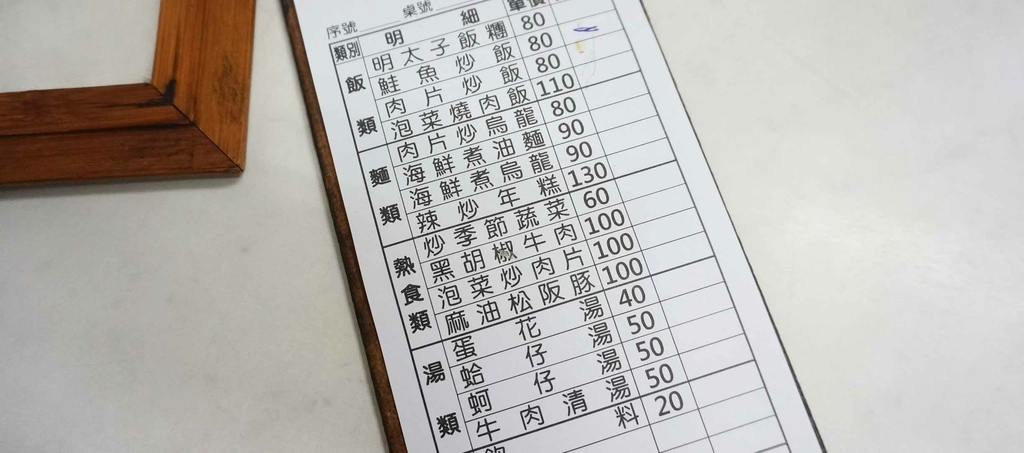 序號 桌號
類別 明細 單價
飯類
明太子飯糰 80
鮭魚炒飯 80
肉片炒飯 80
泡菜燒肉飯 110
麵類
肉片炒烏龍 80
海鮮煮油麵 90
海鮮煮烏龍 90
辣炒年糕 130
熱食類
炒季節蔬菜 60
黑胡椒牛肉 100
泡菜炒肉片 100
麻油松阪豚 100
湯類
蛋花湯 40
蛤仔湯 50
蚵仔湯 50
牛肉清湯 50
飲料 20